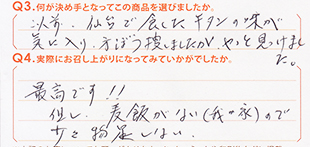 Q3.何が決め手となってこの商品を選びましたか。
以前、仙台で食した牛タンの味が
気に入り、方ぼう捜しましたが、やっと見つけました。
Q4.実際にお召し上がりになってみていかがでしたか。
最高です!!
但し、麦飯がない(我が家)ので
少々物足しない。